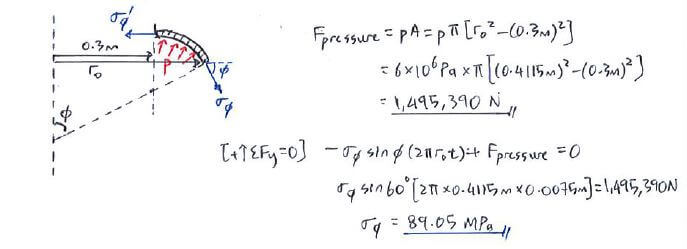 σϕ'
0.3m
r₀
P
ϕ
σϕ
ϕ
Fpressure = pA = pπ[r₀² − (0.3m)²]
= 6×10⁶ Pa × π[(0.4115m)² − (0.3m)²]
= 1,495,390 N
[+↑ΣFy=0] − σϕ sinϕ (2πr₀t) + Fpressure = 0
σϕ sin60° [2π × 0.4115m × 0.0075m] = 1,495,390N
σϕ = 89.05 MPa